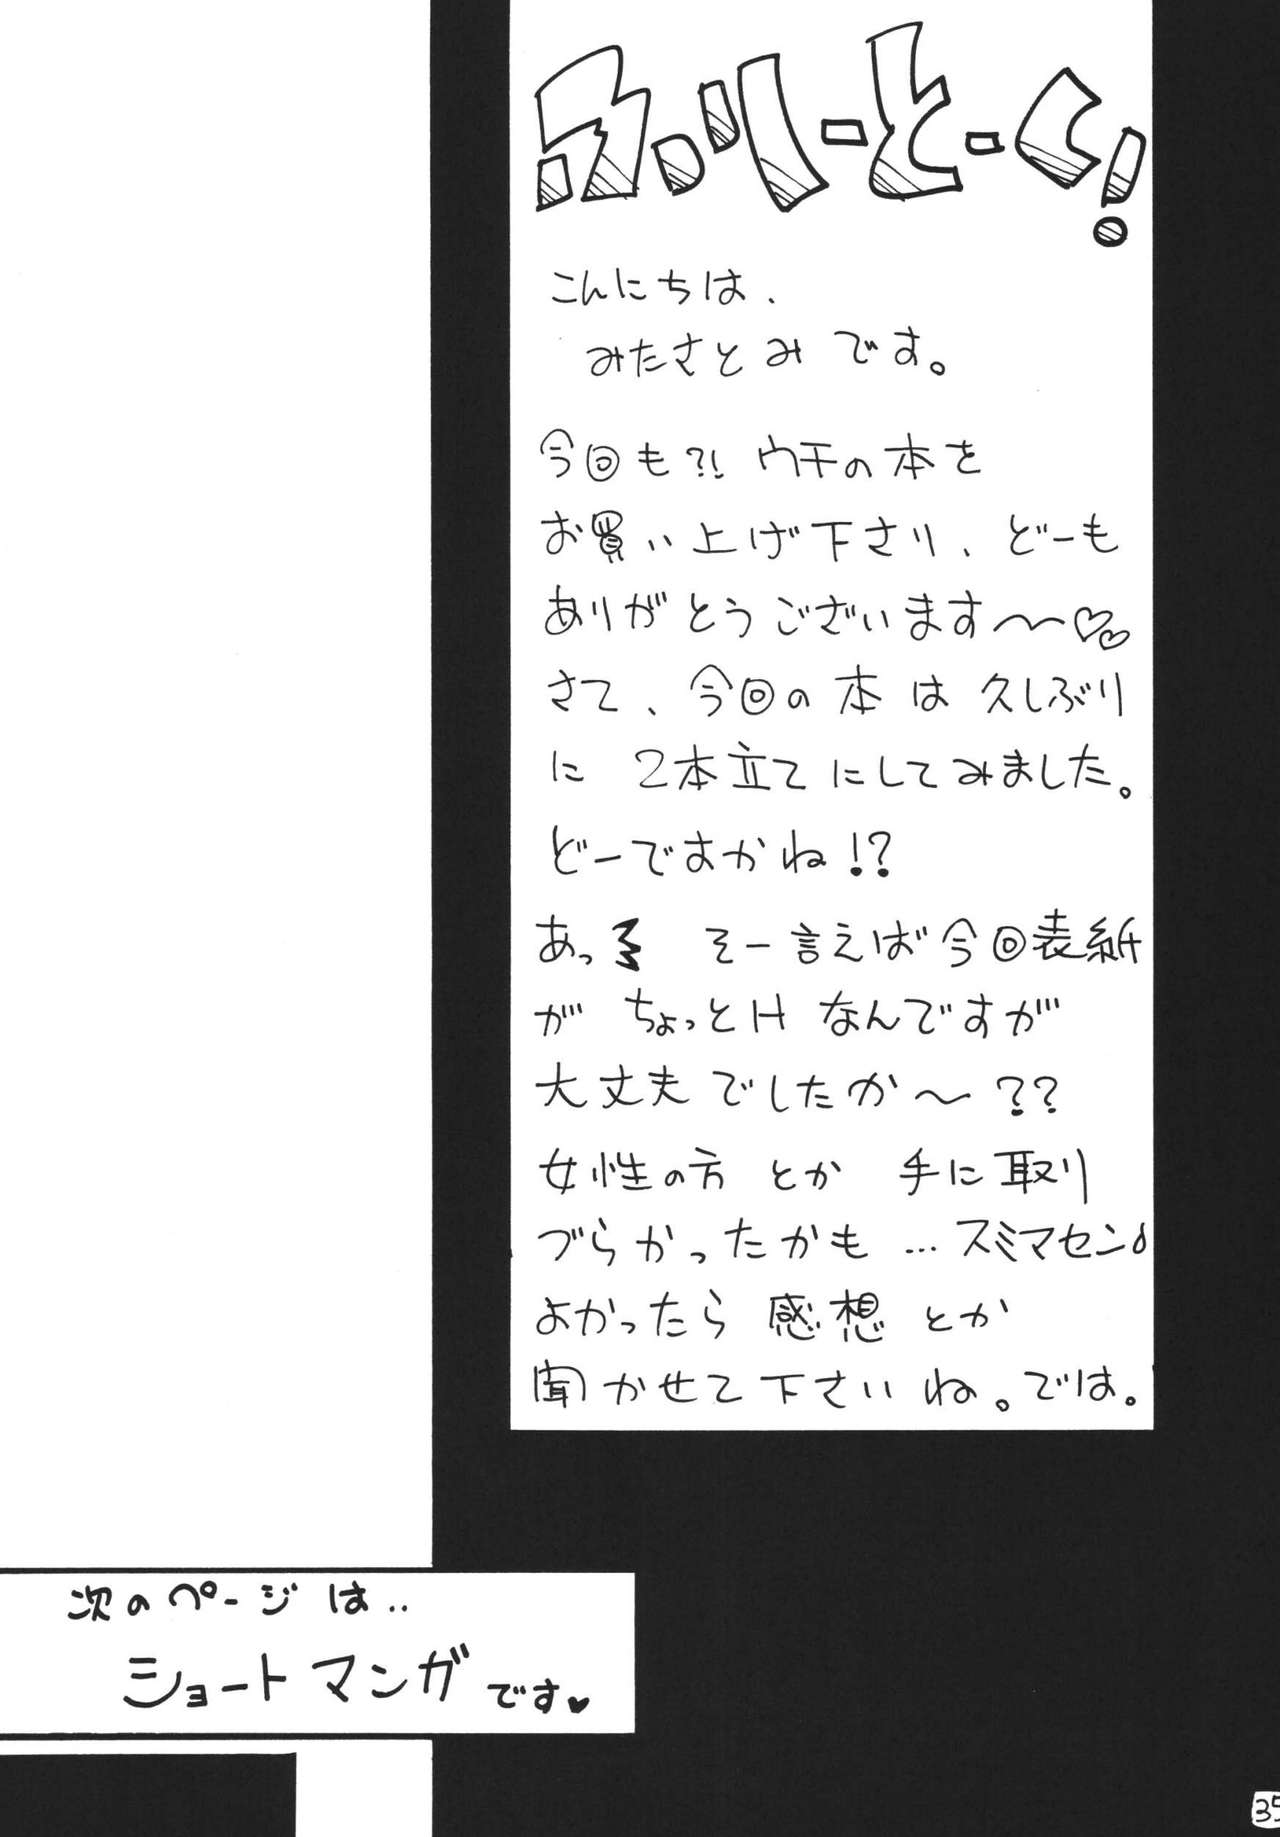 ふりーとーく!
こんにちは、
みたさとみです。
今回も?! ウチの本を
お買い上げ下さり、どーも
ありがとうございます〜♡♡
さて、今回の本は久しぶり
に 2本立てにしてみました。
どーですかね!?
あっ そー言えば今回表紙
が ちょっとH なんですが
大丈夫でしたか〜??
女性の方とか 手に取り
づらかったかも…スミマセン
よかったら 感想 とか
聞かせて下さいね。では。
次のページは..
ショートマンガです♥
35